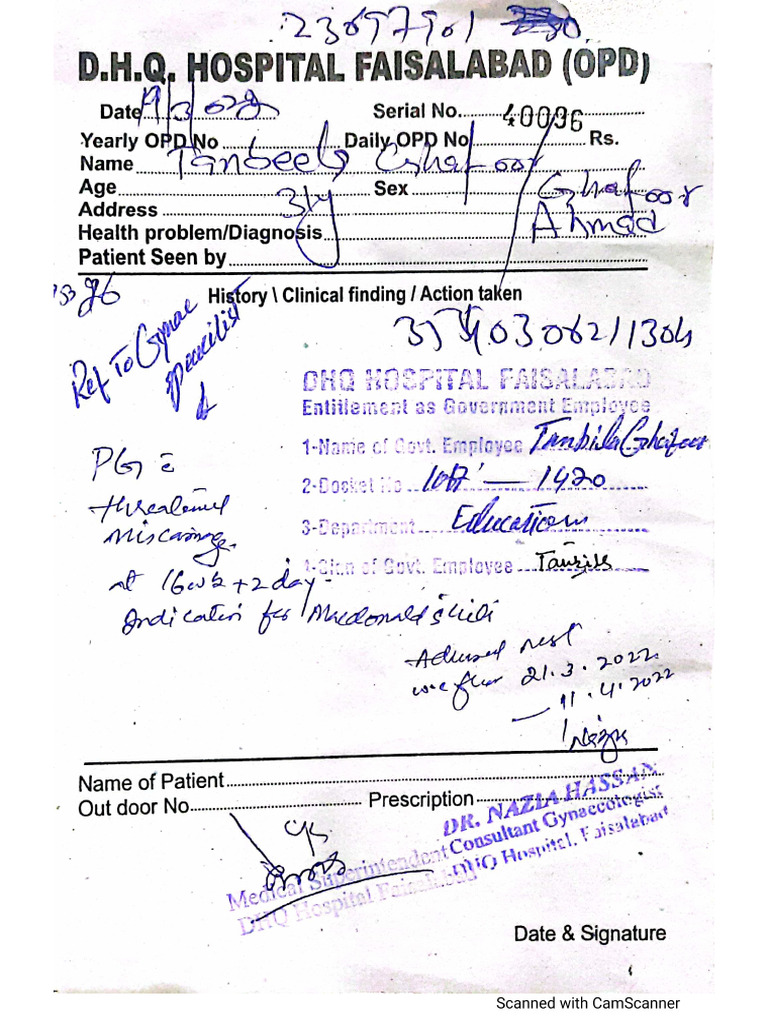 D.H.Q. HOSPITAL FAISALABAD (OPD)
Date 19/3/022 Serial No. 40096
Yearly OPD No Daily OPD No Rs.
Name Tanbeela Ghafoor
Age 31y Sex Ghafoor
Address Ahmad
Health problem/Diagnosis
Patient Seen by
History \ Clinical finding / Action taken
Ref To Gynae
DHQ HOSPITAL FAISALABAD
Entitlement as Government Employee
1-Name of Govt. Employee Tanbila Ghafoor
2-Docket No
3-Department Education
4-Sign of Govt. Employee
PG c̄
threatened
Miscarriage
at 16wk + 2 day
Indication for Macdonald's
Advised rest
w.e from 21.3.2022
— 11.4.2022
Name of Patient
Out door No Prescription
DR. NAZIA HASSAN
Consultant Gynaecologist
DHQ Hospital, Faisalabad
Medical Superintendent
DHQ Hospital Faisalabad
Date & Signature
Scanned with CamScanner